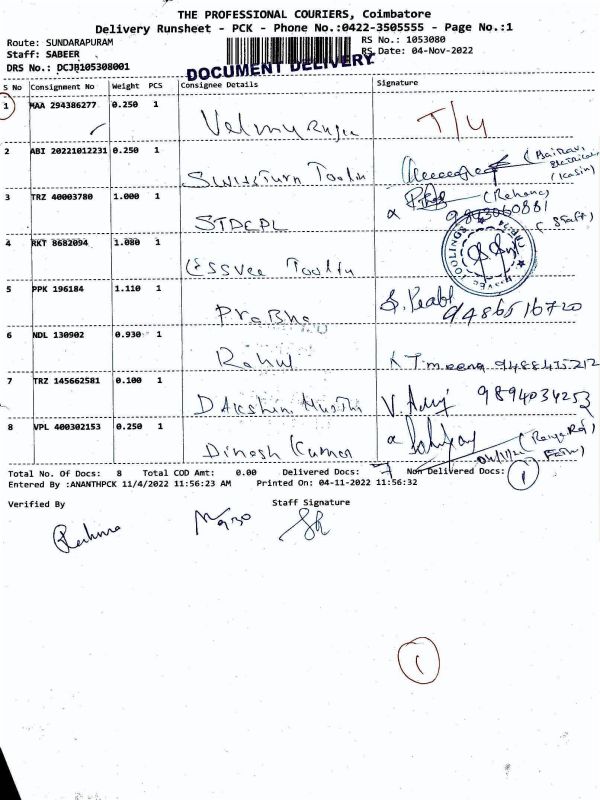 THE PROFESSIONAL COURIERS, Coimbatore
Delivery Runsheet - PCK - Phone No.:0422-3505555 - Page No.:1
Route: SUNDARAPURAM
RS No.: 1053080
Staff: SABEER
RS Date: 04-Nov-2022
DRS No.: DCJB105308001
DOCUMENT DELIVERY
S No Consignment No Weight PCS Consignee Details Signature
1 MAA 294386277 0.250 1 Velmurugan T/4
2 ABI 20221012231 0.250 1 Swissturn Toolin
3 TRZ 40003780 1.000 1 STDEPL (Rehana)
4 RKT 8682094 1.080 1 Essvee Toolin (Staff)
5 PPK 196184 1.110 1 Prabha 9486516720
6 NDL 130902 0.930 1 Rahul
7 TRZ 145662581 0.100 1 DAkshin Murthi 9894034253
8 VPL 400302153 0.250 1 Dinesh Kumar
Total No. Of Docs: 8 Total COD Amt: 0.00 Delivered Docs: 7 Non Delivered Docs: 1
Entered By :ANANTHPCK 11/4/2022 11:56:23 AM Printed On: 04-11-2022 11:56:32
Verified By Staff Signature
1